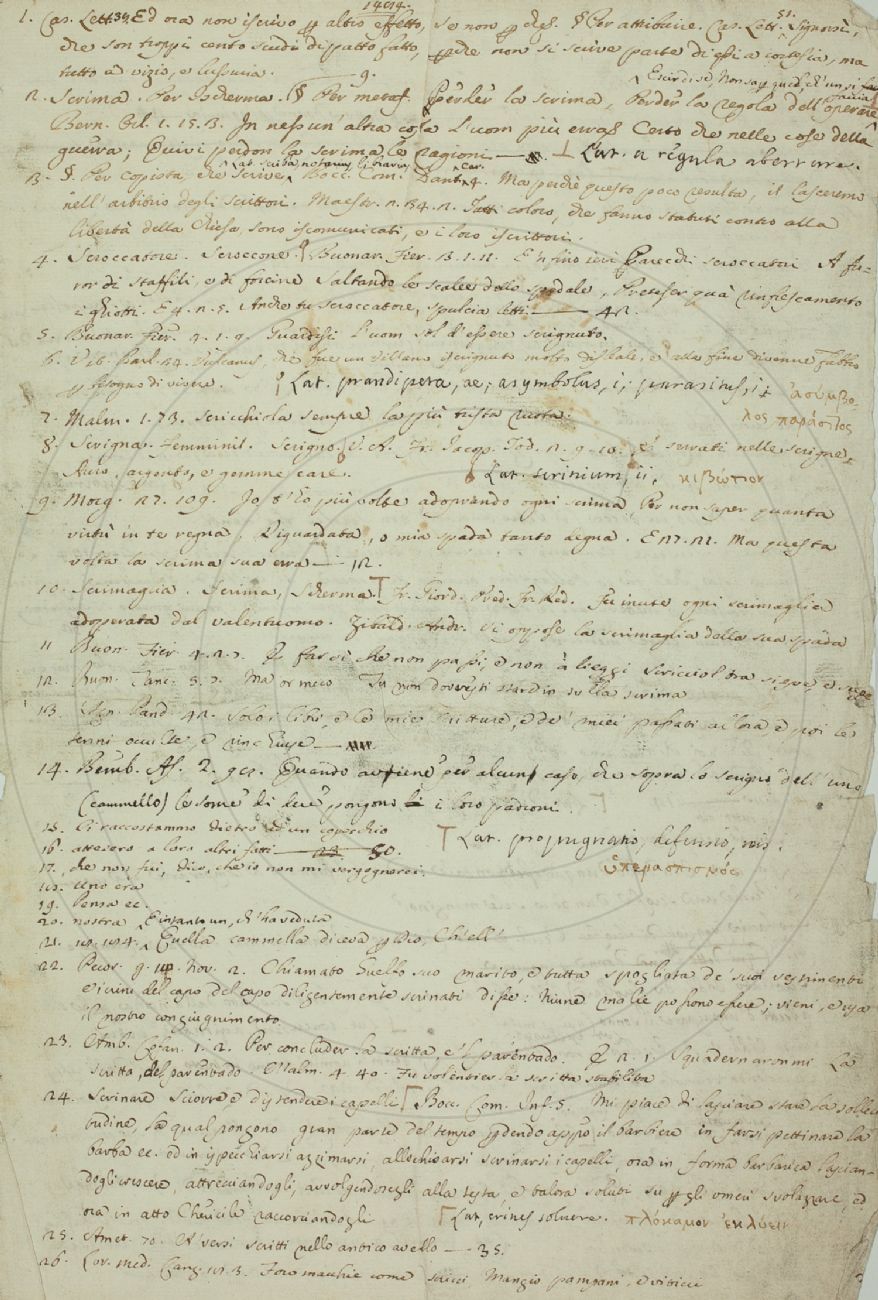 1. Cas. Lett. Ed ora non iscrivo altro effetto, se non Per attribuire. Cas. Lett. 51. Signorsì,
che son troppi cento scudi di patto fatto, non si scrive parte di essi a cortesia, ma
tutto a vizio, e lussuria. 9.
2. Scrima. Per Ischerma. § Per metaf. Perder la scrima, Perder la regola dell'operare
Bern. Orl. 1. 15. 3. In ness'un' altra cosa L'uom più erra Certo che nelle cose della
guerra; Quivi perdon la scrima le ragioni Lat. a regula aberrare.
3. §. Per copista, che scrive, Lat. scriba, notarius, librarius Bocc. Com. Dant. Ma perchè questo poco resulta, il lasceremo
nell'arbitrio degli scrittori. Maestr. 2. 34. 2. Tutti coloro, che fanno statuti contro alla
libertà della Chiesa, sono iscomunicati, e i loro iscrittori.
4. Scroccatore. Scroccone. § Buonar. Fier. 3. 1. 11. E 'nfino ieri Parecchi scroccatori A fu-
ror di staffili, e di forcine Saltando le scale dello spedale, Preteser quà rinfrescamento
i ghiotti. E 4. 2. 5. Anche tu scroccatore, spulcia letti. 42.
5. Buonar. Fier. 4. 1. 9. Guardisi L'uom sol d'essere scrignuto.
6. Vit. Barl. 24. che fue un villano iscrignuto molto disleale, e alla fine divenne fabbro
bisogno di vivere. § Lat. prandipeta, ae; asymbolus, i; parasitus, i; ἀσύμβο
λος παράσιτος
7. Malm. 1. 73. scricchiola sempre la più trista ruota.
8. Scrigna. Femminil. Scrigno. V. A. Fr. Jacop. Tod. 2. 9. 10. serrati nelle scrigne
Auro, argento, e gemme care. Lat. scrinium, ii, κιβώτιον
9. Morg. 27. 109. Io t'ho più volte adoprando ogni scrima, Per non saper quanta
virtù in te regna, Riguardata, o mia spada tanto degna. E 27. 21. Ma questa
volta la scrima sua erra 12.
10. Scrimaglia. Scrima, Scherma. Fr. Giord. Pred. Fr. Red. Fu inute ogni scrimaglia
adoperata dal valentuomo. Zibald. Andr. Si oppose la scrimaglia della sua spada
11 Buon. Fier. 4. 2. 7. E far sì che non passi, e non aleggi Scricciol tra siepe, e siepe
12. Buon. Tanc. 5. 7. Ma or meco Tu non dovresti stard in sulla scrima
13. Agn. Pand. 42. Solo i libri, e le mie scritture, e de' miei passati allora, e poi le
tenni occulte, e rinchiuse
14. Bemb. As. 2. Quando avviene per alcun caso, che sopra lo scrigno dell'uno
(cammello) le some di due pongono i loro padroni.
15. Ci raccostammo dietro ad un coperchio
16. attesero a loro altri fatti 50. Lat. propugnatio, defensio, nis.
17. che non fui, dico, che io non mi vergognerei. ὑπερασπισμός
18. uno era
19. Pensa ec.
20. nostra E intanto un, ch'ha veduta
21. Quella cammella diceva, Ch'ell'
22. Pecor. g. Nov. 2. Chiamato Suelto suo marito, e tutta spogliata de' suoi vestimenti
e i crini del capo del capo diligentemente scrinati disse: Niune malie possono essere; vieni, e usa
il nostro congiugnimento
23. Amb. Cofan. 1. 2. Per concluder la scritta, e 'l parentado. E 2. 1. Squadernaronmi La
scritta, del parentado. Malm. 4 40. Fu volentier la scritta stabilita
24. Scrinare Sciorre e distendere i capelli Bocc. Com. Inf. 5. Mi piace di lasciare stare la solleci
tudine, la qual pongono gran parte del tempo perdendo appo il barbiere in farsi pettinare la
barba ec. ed in ispecchiarsi azzimarsi, allecchiarsi scrinarsi i capelli, ora in forma barbarica lascian-
dogli crescere, attrecciandogli, avvolgendosegli alla testa, e talora soluti su per gli omeri svolazzare, ed
ora in atto Chericile raccorciandogli Lat. crines solvere. πλόκαμον ἐκλύειν
25. Amet. 70. A' versi scritti nello antico avello 35.
26. Lor. Med. Canz. 3. Foro macchie come scricci, Mangio pampani, e viticci